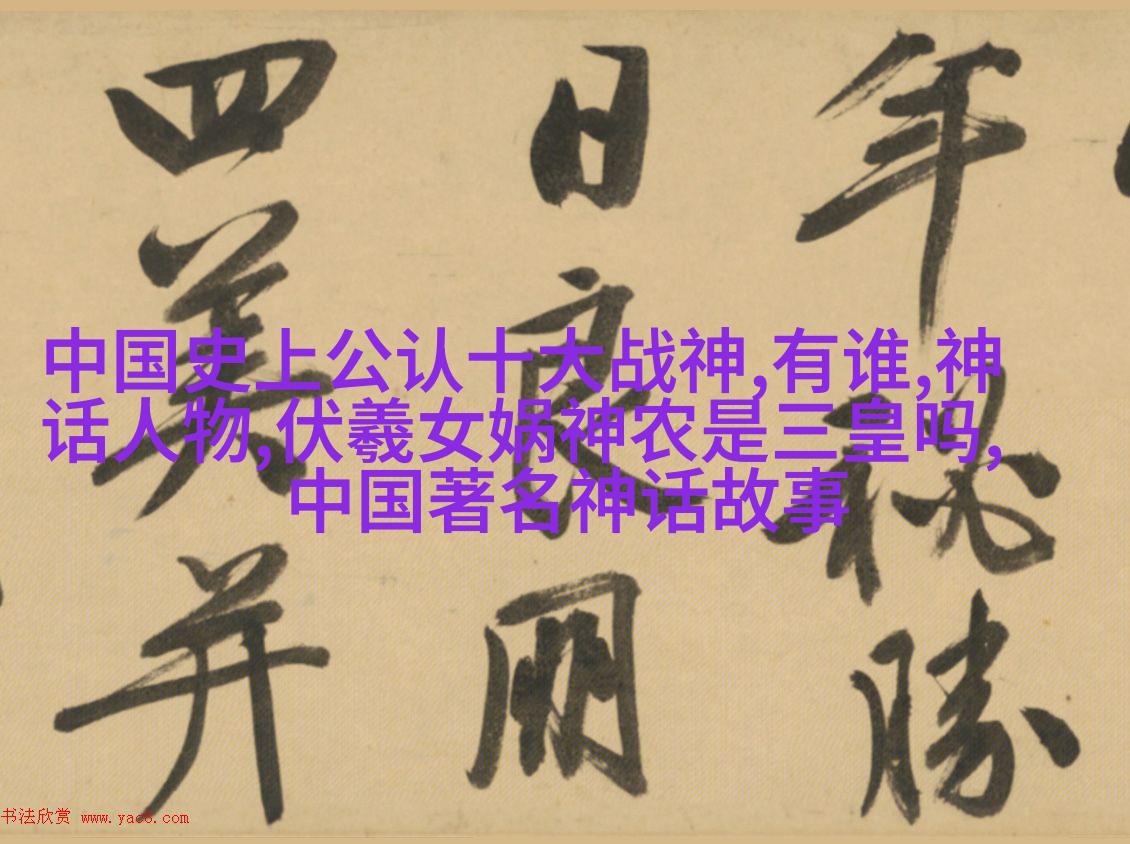 年秘勝
日良朋
四美并
中国史上公认十大战神,有谁,神
话人物,伏羲女娲神农是三皇吗,
中国著名神话故事
书法欣赏 www.yac8.com